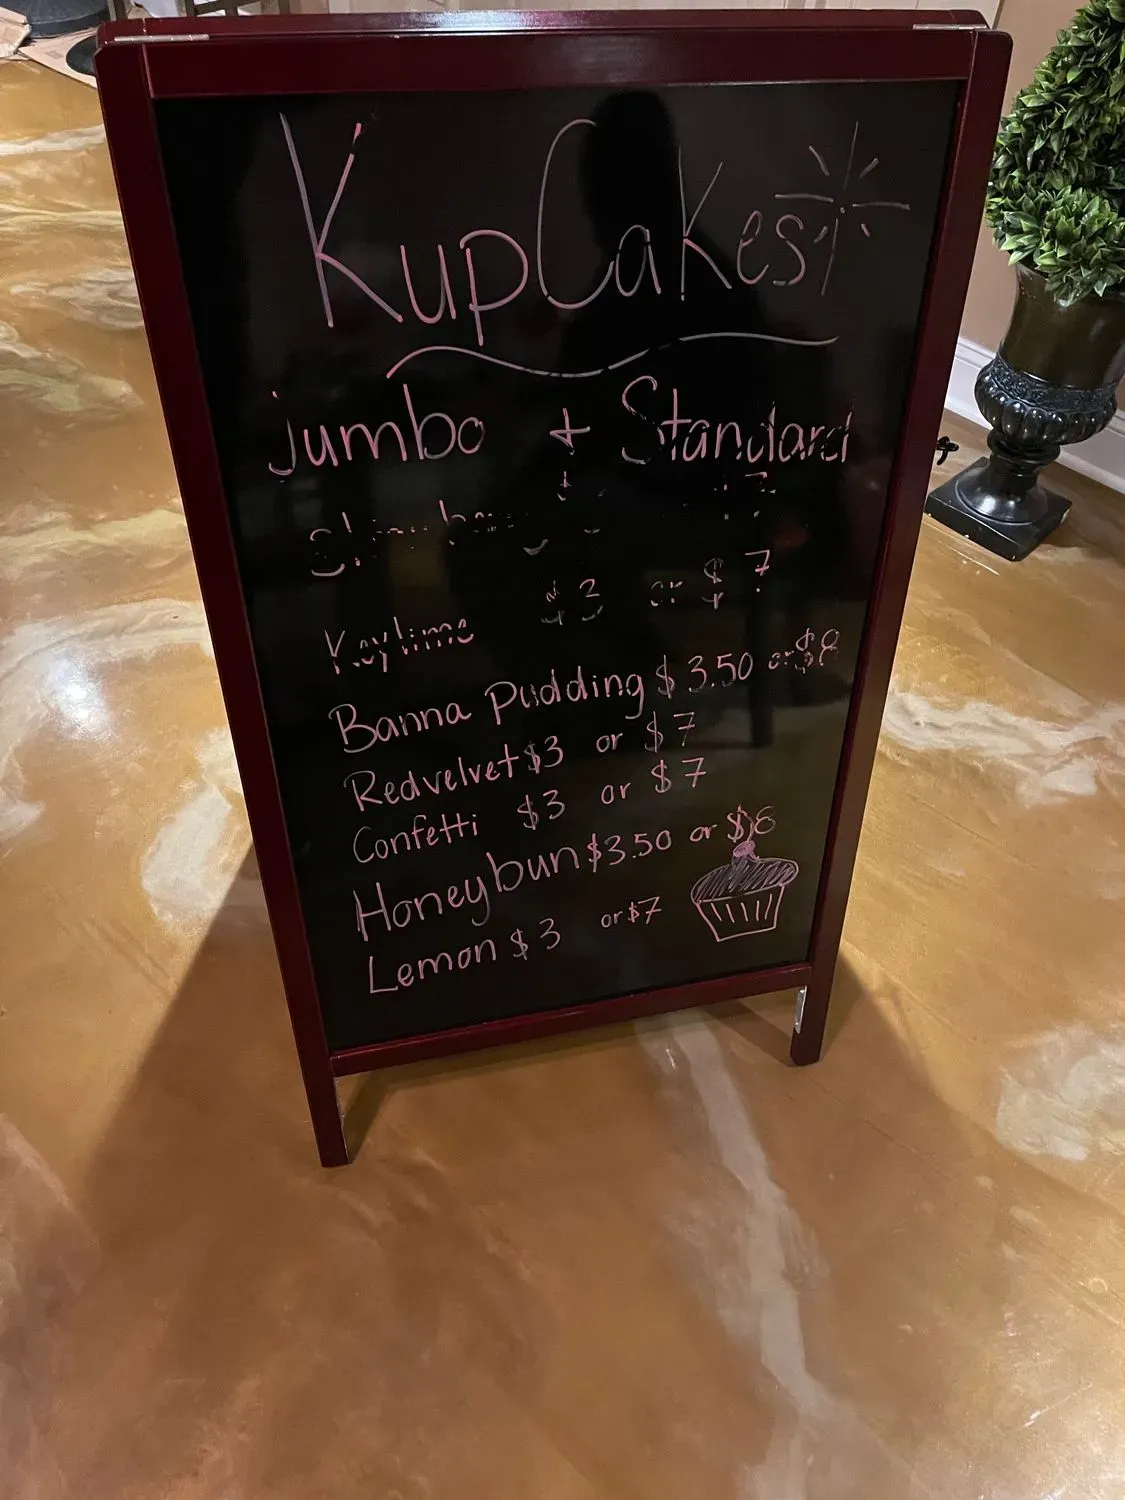 KupCakes!
jumbo + Standard
Keylime $3 or $7
Banna Pudding $3.50 or $8
Redvelvet $3 or $7
Confetti $3 or $7
Honeybun $3.50 or $8
Lemon $3 or $7